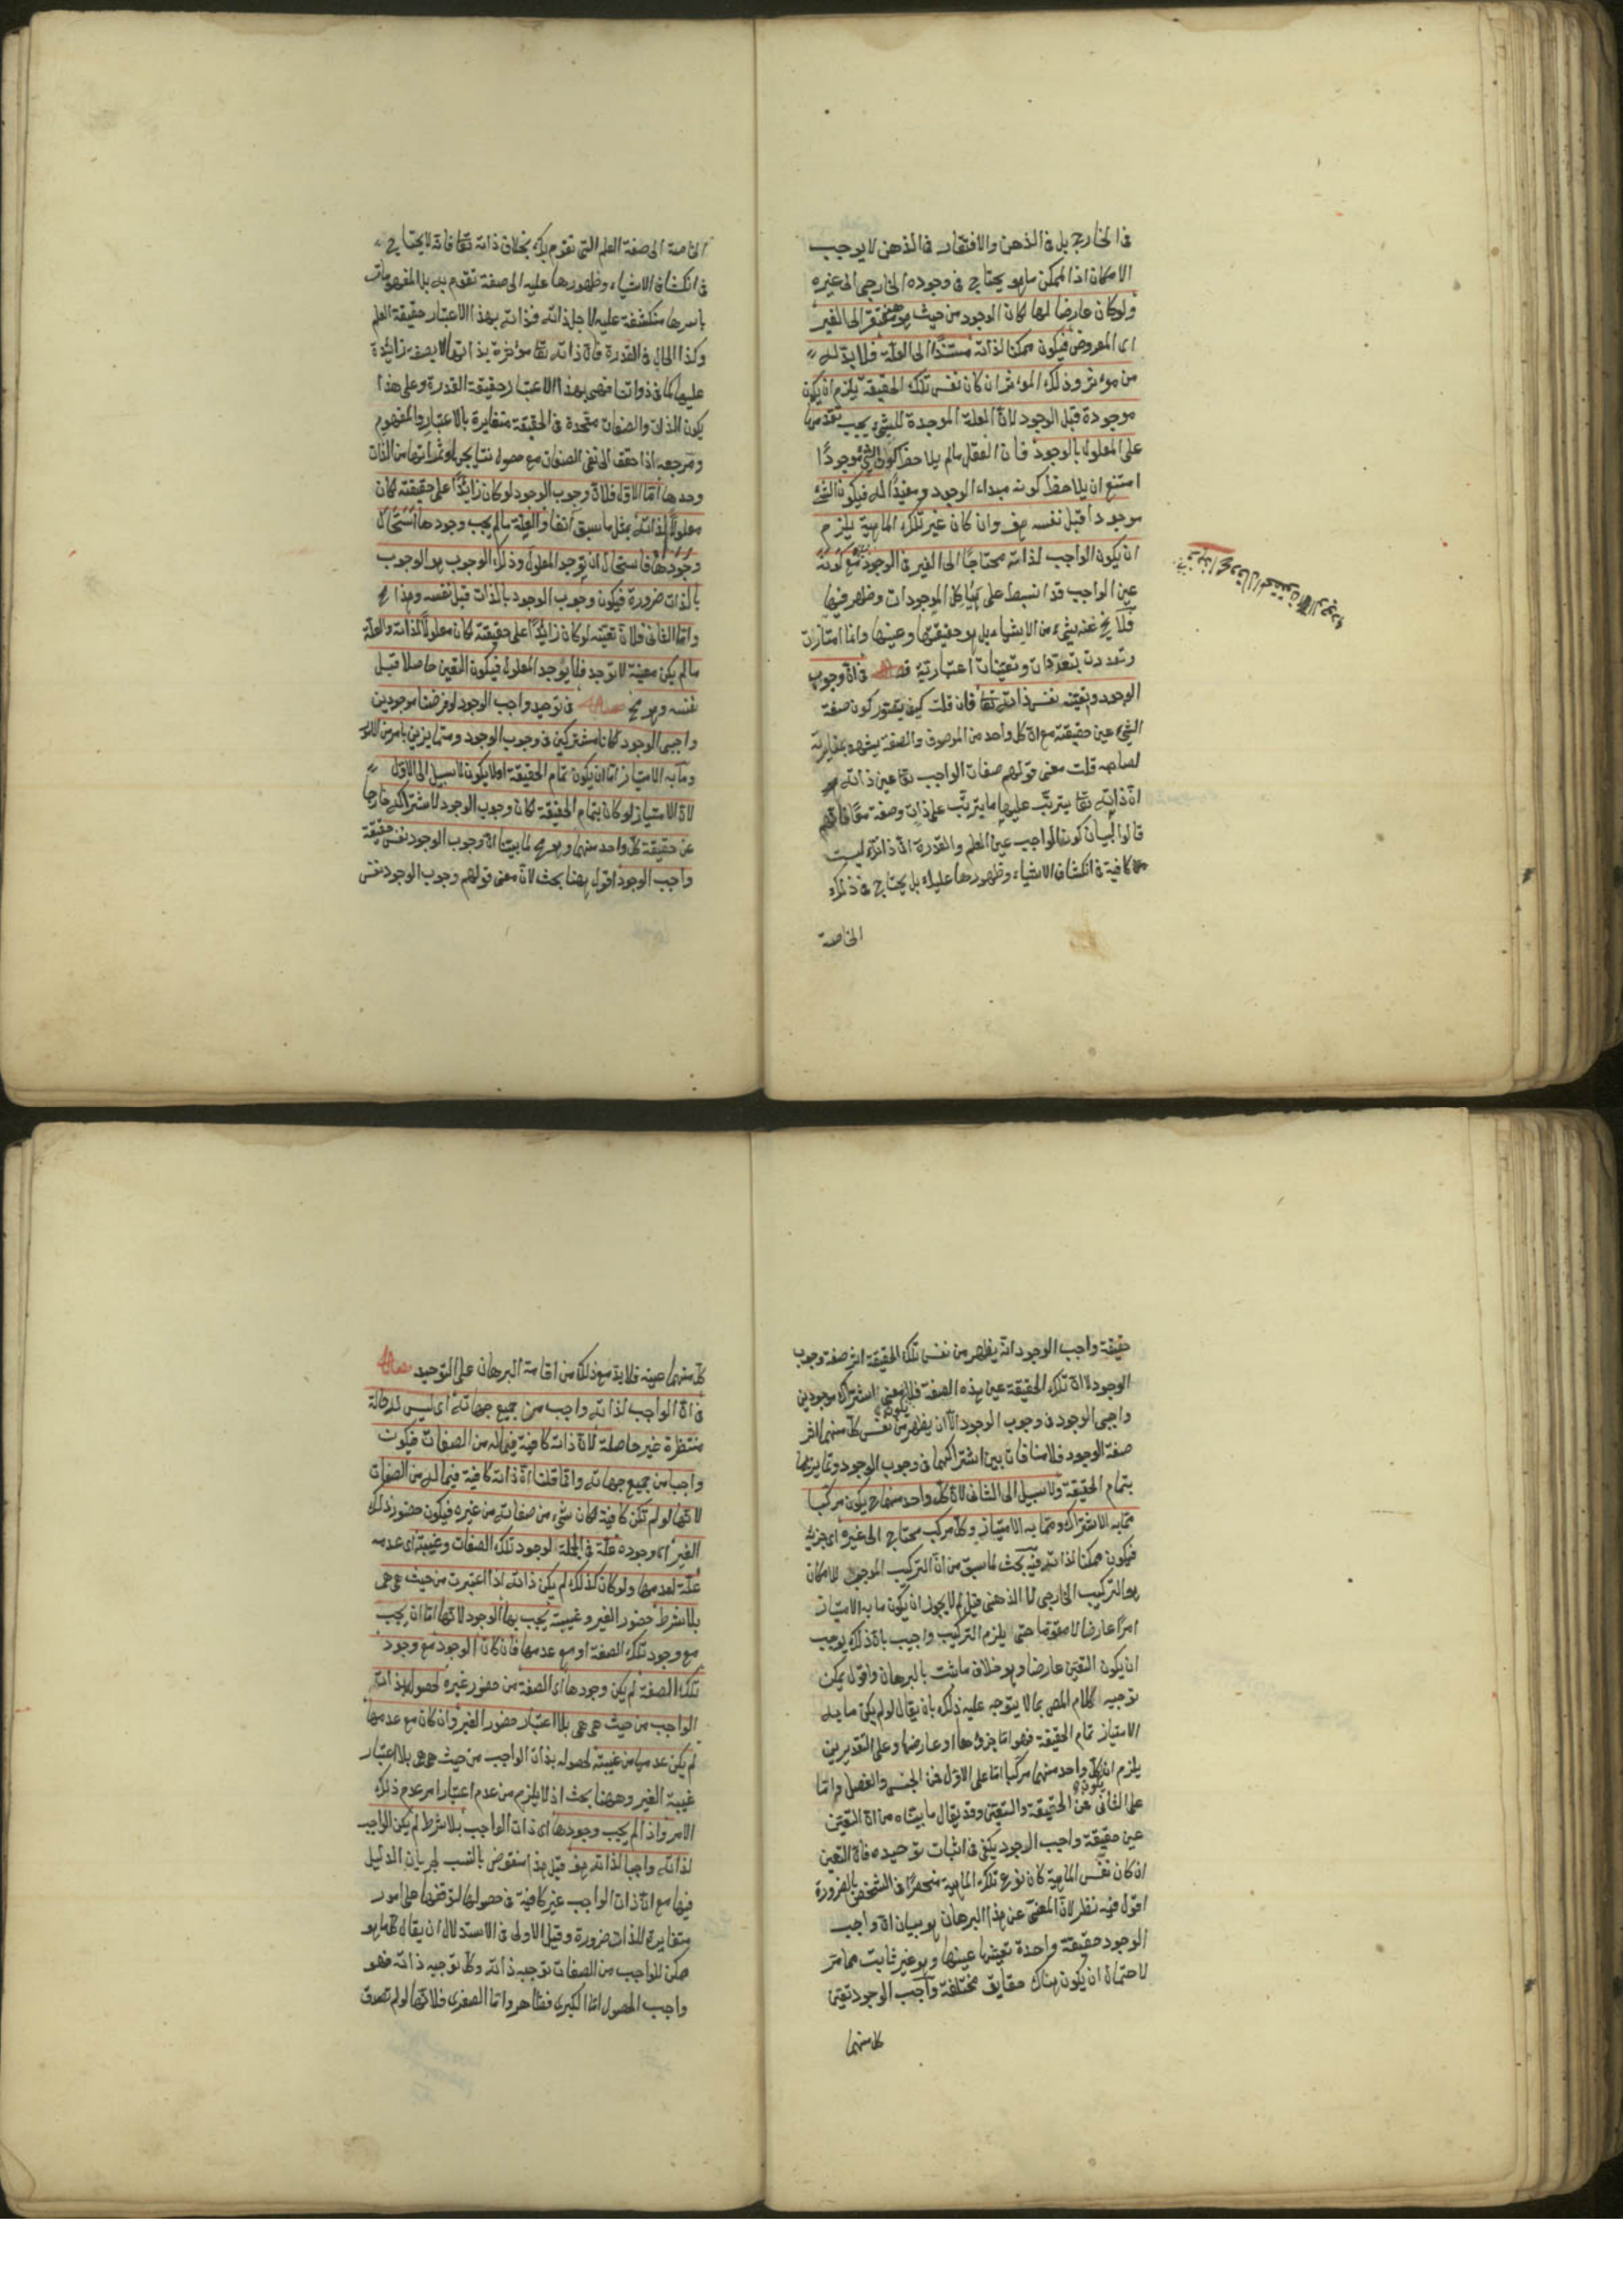 فى الخارج بل فى الذهن والافتقار فى الذهن لا يوجب
الامكان اذ الممكن ما هو يحتاج فى وجوده الخارجى الى غيره
ولو كان عارضا لها لكان الوجود من حيث هو هو مفتقر الى الغير
اى المعروض فيكون ممكنا لذاته مستندًا الى العلة فلا بد له
من مؤثر وذلك المؤثر ان كان نفس تلك الحقيقة يلزم ان يكون
موجودة قبل الوجود لانّ العلة الموجدة للشئ يجب تقدمها
على المعلول بالوجود فان العقل ما لم يلاحظ كون الشئ موجودًا
امتنع ان يلاحظ كونه مبداء الوجود ومفيدًا له فيكون الشئ
موجودا قبل نفسه هف وان كان غير تلك الماهية يلزم
ان يكون الواجب لذاته محتاجًا الى الغير فى الوجود مع كونه
عين الواجب قد انبسط على هياكل الموجودات وظهر فيها
فلا يخ عنه شئ من الاشياء بل هو حقيقتها وعينها وانما امتازت
وتعددت بتعددات وتعينات اعتبارية فصل فى ان وجوب
الوجود وتعينه نفس ذاته تعا فان قلت كيف يتصور كون صفة
الشئ عين حقيقته مع ان كل واحد من الموصوف والصفة يشهد بمغايرته
لصاحبه قلت معنى قولهم صفات الواجب تعا عين ذاته هو
ان ذاته تعا يترتب عليها ما يترتب على ذات وصفة معًا فانهم
قالوا لبيان كون الواجب عين العلم والقدرة ان ذاتك ليست
كافية فى انكشاف الاشياء وظهورها عليك بل يحتاج فى ذلك
الخاصة
الخاصة الى صفة العلم التى تقوم بك بخلاف ذاته تعا فانه لا يحتاج
فى انكشاف الاشياء وظهورها عليه الى صفة تقوم به بل المفهومات
باسرها منكشفة عليه لاجل ذاته فذاته بهذا الاعتبار حقيقة العلم
وكذا الحال فى القدرة فان ذاته تعا مؤثرة بذاتها لا بصفة زائدة
عليها كما فى ذواتنا فهى بهذا الاعتبار حقيقة القدرة وعلى هذا
يكون الذات والصفات متحدة فى الحقيقة متغايرة بالاعتبار والمفهوم
ومرجعه اذا حقق الى نفى الصفات مع حصول نتايجها وثمراتها من الذات
وحدها امّا الاول فلان وجوب الوجود لو كان زائدًا على حقيقته لكان
معلولًا لذاته بمثل ما سبق آنفا والعلة ما لم يجب وجودها استحال
وجودها فاستحال ان يوجد المعلول وذلك الوجوب هو الوجوب
بالذات ضرورة فيكون وجوب الوجود بالذات قبل نفسه وهذا مح
وامّا الثانى فلان تعينه لو كان زائدًا على حقيقته لكان معلولًا لذاته والعلة
ما لم يكن معينة لا توجد فلا يوجد المعلول فيكون التعين حاصلا قبل
نفسه وهو مح فصل فى توحيد واجب الوجود لو فرضنا موجودين
واجبى الوجود لكانا مشتركين فى وجوب الوجود ومتمايزين بامر من الامور
وما به الامتياز امّا ان يكون تمام الحقيقة اولا يكون لا سبيل الى الاول
لان الامتياز لو كان بتمام الحقيقة لكان وجوب الوجود لاشتراكه خارجا
عن حقيقة كل واحد منهما وهو مح لما بينا ان وجوب الوجود نفس حقيقة
واجب الوجود اقول ههنا بحث لان معنى قولهم وجوب الوجود نفس
حقيقة واجب الوجود انه يظهر من نفس تلك الحقيقة اثر صفة وجوب
الوجود لا ان تلك الحقيقة عين هذه الصفة فلا معنى اشتراك موجودين
واجبى الوجود فى وجوب الوجود الا ان يظهر من نفس كل منهما اثر
صفة الوجود فلا منافات بين اشتراكهما فى وجوب الوجود وتمايزهما
بتمام الحقيقة ولا سبيل الى الثانى لان كل واحد منهما ح يكون مركبا
مما به الاشتراك ومما به الامتياز وكل مركب محتاج الى غيره اى جزئه
فيكون ممكنا لذاته فيه بحث لما سبق من ان التركيب الموجب للامكان
هو التركيب الخارجى لا الذهنى قيل لم لا يجوز ان يكون ما به الامتياز
امرًا عارضا لا مقوما حتى يلزم التركيب واجيب بان ذلك يوجب
ان يكون التعين عارضا وهو خلاف ما ثبت بالبرهان واقول يمكن
توجيه كلام المص بما لا يتوجه عليه ذلك بان يقال لو لم يكن ما به
الامتياز تمام الحقيقة فهو امّا جزؤها او عارضها وعلى التقديرين
يلزم ان يكون كل واحد منهما مركبا امّا على الاول فمن الجنس والفصل وامّا
على الثانى فمن الحقيقة والتعين وقد يقال ما بيناه من ان التعين
عين حقيقة واجب الوجود يكفى فى اثبات توحيده فان التعين
ان كان نفس الماهية كان نوع تلك الماهية منحصرًا فى الشخص بالضرورة
اقول فيه نظر لان المعنى عن هذا البرهان هو بيان ان واجب
الوجود حقيقة واحدة تعينها عينها وهو غير ثابت مما مر
لاحتمال ان يكون هناك حقايق مختلفة واجب الوجود تعين
كل منهما
كل منهما عينه فلا بد مع ذلك من اقامة البرهان على التوحيد فصل
فى ان الواجب لذاته واجب من جميع جهاته اى ليس له حالة
منتظرة غير حاصلة لان ذاته كافية فيما له من الصفات فيكون
واجبا من جميع جهاته وانما قلنا ان ذاته كافية فيما له من الصفات
لانها لو لم تكن كافية لكان شئ من صفاته من غيره فيكون حضور ذلك
الغير اى وجوده علة فى الجملة لوجود تلك الصفات وغيبته اى عدمه
علة لعدمها ولو كان كذلك لم يكن ذاته اذا اعتبرت من حيث هى هى
بلا شرط حضور الغير وغيبته يجب بها الوجود لانها امّا ان يجب
مع وجود تلك الصفة او مع عدمها فان كان الوجود مع وجود
تلك الصفة لم يكن وجودها اى الصفة من حضور غيره لحصولها بذات
الواجب من حيث هى هى بلا اعتبار حضور الغير وان كان مع عدمها
لم يكن عدمها من غيبته لحصوله بذات الواجب من حيث هى هى بلا اعتبار
غيبة الغير وههنا بحث اذ لا يلزم من عدم اعتبار امر عدم ذلك
الامر واذا لم يجب وجودها اى ذات الواجب بلا شرط لم يكن الواجب
لذاته واجبا لذاته هف قيل هذا منقوض بالنسب لجريان الدليل
فيها مع ان ذات الواجب غير كافية فى حصولها لتوقفها على امور
متغايرة للذات ضرورة وقيل الاولى فى الاستدلال ان يقال كل ما هو
ممكن للواجب من الصفات توجبه ذاته وكل ما توجبه ذاته فهو
واجب الحصول امّا الكبرى فظاهر وامّا الصغرى فلانها لو لم تصدق